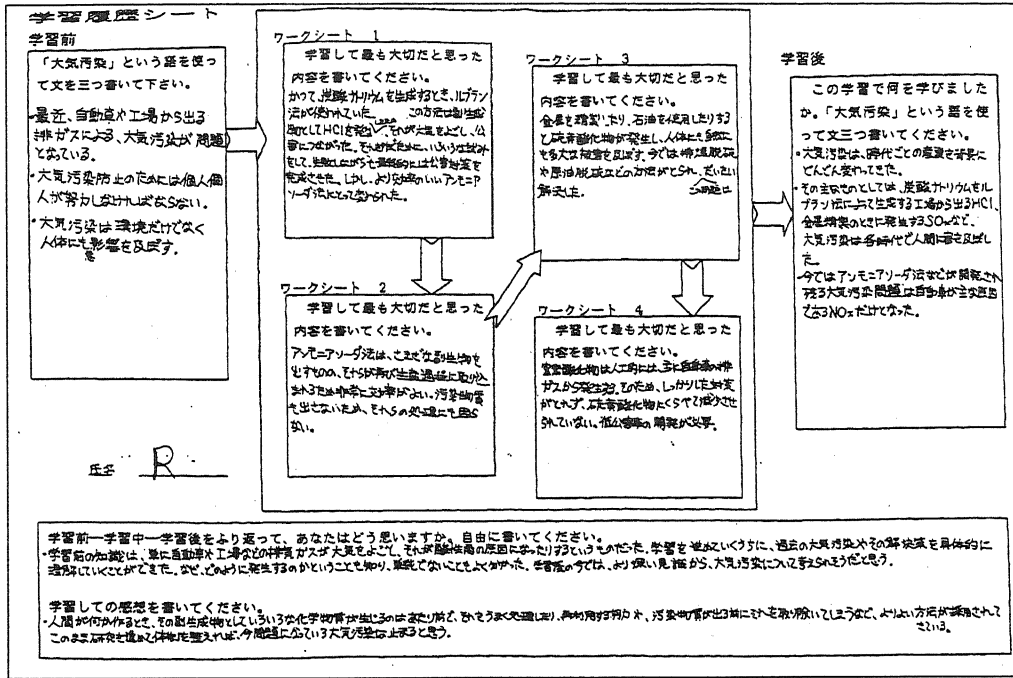 学習履歴シート
学習前
「大気汚染」という語を使っ
て文を三つ書いて下さい。
・最近、自動車や工場から出る
排ガスによる、大気汚染が問題
となっている。
・大気汚染防止のためには個人個
人が努力しなければならない。
・大気汚染は環境だけでなく
人体にも影響を及ぼす。
悪
氏名 R
ワークシート 1
学習して最も大切だと思った
内容を書いてください。
かつて、炭酸ナトリウムを生成するとき、ルブラン
法が使われていた。この方法は副生成
物としてHClを発生し、それが大気をよごし、公
害につながった。そのためにいろいろな試みを
をして、失敗しながらも最終的には公害対策を
完成させた。しかし、より効率のいいアンモニア
ソーダ法にとってかわられた。
ワークシート 2
学習して最も大切だと思った
内容を書いてください。
アンモニアソーダ法は、さまざまな副生成物を
出すものの、それらが再び生産過程に取り込
まれるため非常に効率がよい。汚染物質
を出さないため、それらの処理にも困ら
ない。
ワークシート 3
学習して最も大切だと思った
内容を書いてください。
金属を精製したり、石油を使用したりする
と硫黄酸化物が発生し、人体にも自然に
も多大な被害を及ぼす。今では排煙脱硫
や原油脱硫などの方法がとられ、だいたい
解決した。
この問題は
ワークシート 4
学習して最も大切だと思った
内容を書いてください。
窒素酸化物は人工的には、主に自動車の排
ガスから発生する。そのため、しっかりした対策
がとれず、硫黄酸化物にくらべて減少させ
られていない。低公害車の開発が必要。
学習後
この学習で何を学びました
か。「大気汚染」という語を使
って文三つ書いてください。
・大気汚染は、時代ごとの産業を背景に
どんどん変わってきた。
・その主なものとしては、炭酸ナトリウムをル
ブラン法によって生成する工場から出るHCl、
金属精製のときに発生するSOxなど、
大気汚染は各時代で人間に害を及ぼし
た。
・今ではアンモニアソーダ法などが開発され
残る大気汚染問題は自動車が主な原因
であるNOxだけとなった。
学習前―学習中―学習後をふり返って、あなたはどう思いますか。自由に書いてください。
・学習前の知識は、単に自動車や工場などの排気ガスが大気をよごし、それが酸性雨の原因になったりするというものだった。学習を進めていくうちに、過去の大気汚染やその解決策を具体的に
理解していくことができた。なぜ、どのように発生するのかということも知り、単純でないこともよく分かった。学習後の今では、より深い見識から、大気汚染について考えられそうだと思う。
学習しての感想を書いてください。
・人間が何か作るとき、その副生成物としていろいろな化学物質が生じるのはあたり前で、それをうまく処理したり、再利用する努力や、汚染物質が出る前にそれを取り除いてしまうなど、よりよい方法が採用されて
きている。
このまま研究を進めて体制を整えれば、今問題になっている大気汚染は止まると思う。